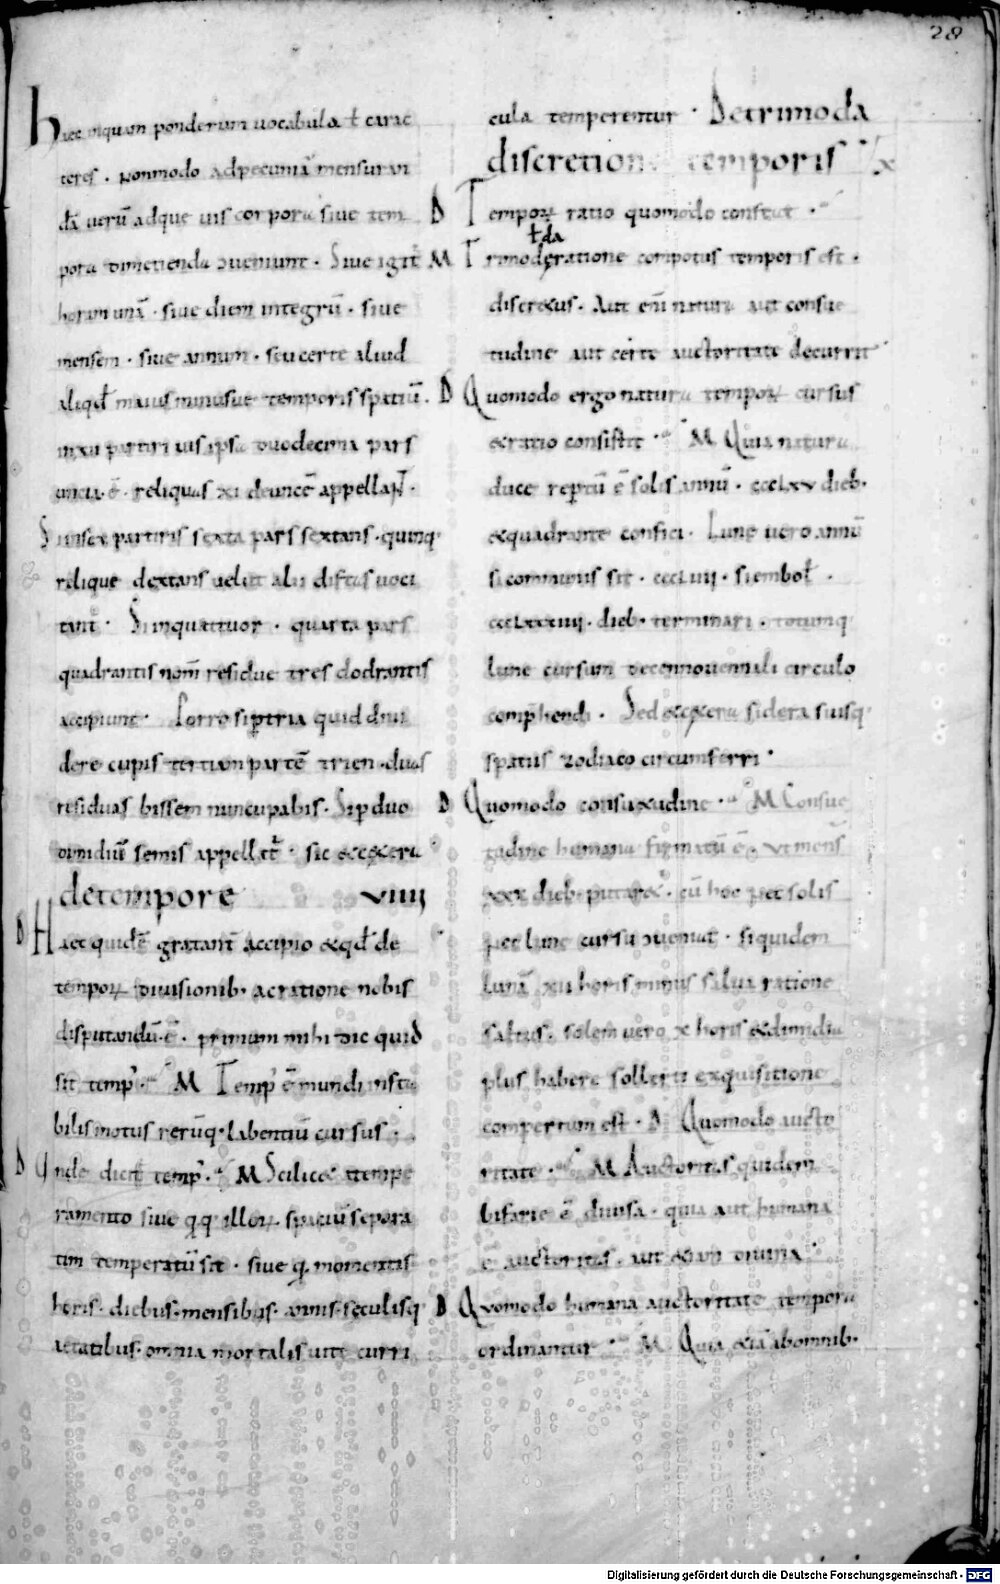 28
Haec inquam ponderum uocabula ł carac
teres. Nonmodo adpecuniā mensuran
dā uerū adque uis corpora siue tem
pora dimetienda ɔueniunt. Siue igit̄
horam unā. siue diem integrū. siue
mensem. siue annum. seu certe aliud
aliqd̄ maius minusue temporis spatiū.
inxii partiri uis ipsa duodecima pars
uncia ē. reliquas xi deuncē appellant̄.
Si insex partiris sexta pars sextans. quinq·
relique dextans uelut alii distas uoci
tant̄. Si inquattuor. quarta pars
quadrantis nom̄ residue tres dodrantis
accipiunt. Porro sip tria quid diui
dere cupis tertiam partē trien. duas
residuas bissem nuncupabis. Sip duo
dimidiū semis appellat̄. sic & cetera
detempore VIIII
D Haec quidē gratant̄ accipio & qd̄ de
tempoꝝ diuisionib· ac ratione nobis
disputandū ē. primum mihi dic quid
sit temp᾿. M Temp᾿ ē mundi insta
bilis motus rerūq· labentiū cursus.
D Unde dicit̄ temp᾿. M Scilic& ttempe
ramento siue q q illoꝝ spaciū separa
tim temperatū sit. siue q momentis
horis. diebus. mensibus. annis. seculisq·
aetatibus. omnia mortalis uite curri
cula temperentur. Detrimoda
discretione temporis X
D Tempoꝝ ratio quomodo constat.
ł da
M Trimoderatione compotus temporis est.
discretus. Aut enī natura aut consue
tudine aut certe auctoritate decurrit
D Quomodo ergo natura tempoꝝ cursus
& ratio consistit. M Quia natura
duce reptū ē solis annū. ccclxv dieb·
& quadrante confici. Lune uero annū
si communis sit. cccliiii. si embol̄.
ccclxxxiiii. dieb· terminari. totumq·
lune cursum decennouennali circulo
comp̄hendi. Sed & cetera sidera suisq·
spatiis zodiaco circumferri.
D Quomodo consuetudine. M Consue
tudine humana firmatū ē. ut mens̄
xxx dieb· putar&. cū hoc nec solis
nec lune cursu ɔueniat. siquidem
lunā xii horis minus salua ratione
saltus. solem uero x horis & dimidia
plus habere sollerti exquisitione
compertum est. D Quomodo aucto
ritate. M Auctoritas quidem
bifarie ē diuisa. quia aut humana
ē auctoritas. aut etiam diuina.
D Quomodo humana auctoritate tempora
ordinantur. M Quia &iā abomnib·
Digitalisierung gefördert durch die Deutsche Forschungsgemeinschaft - DFG